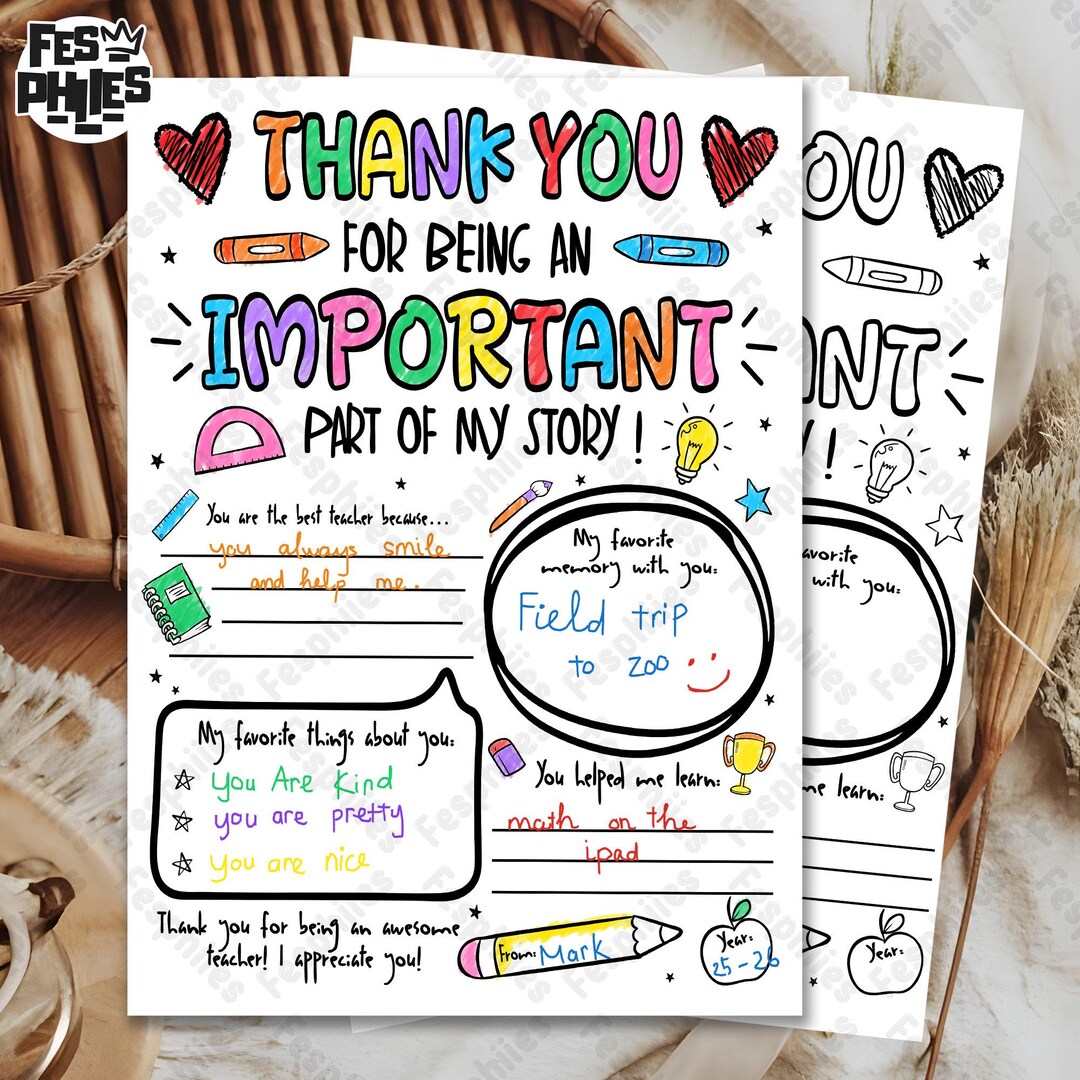 FES
PHIIES
THANK YOU
FOR BEING AN
IMPORTANT
PART OF MY STORY!
You are the best teacher because...
you always smile
and help me.
My favorite
memory with you:
Field trip
to zoo
My favorite things about you:
you Are Kind
you are pretty
you are nice
You helped me learn:
math on the
ipad
Thank you for being an awesome
teacher! I appreciate you!
From: Mark
Year:
25-26
OU
ANT
Y!
avorite
with you:
me learn:
Year:
Fesphiies